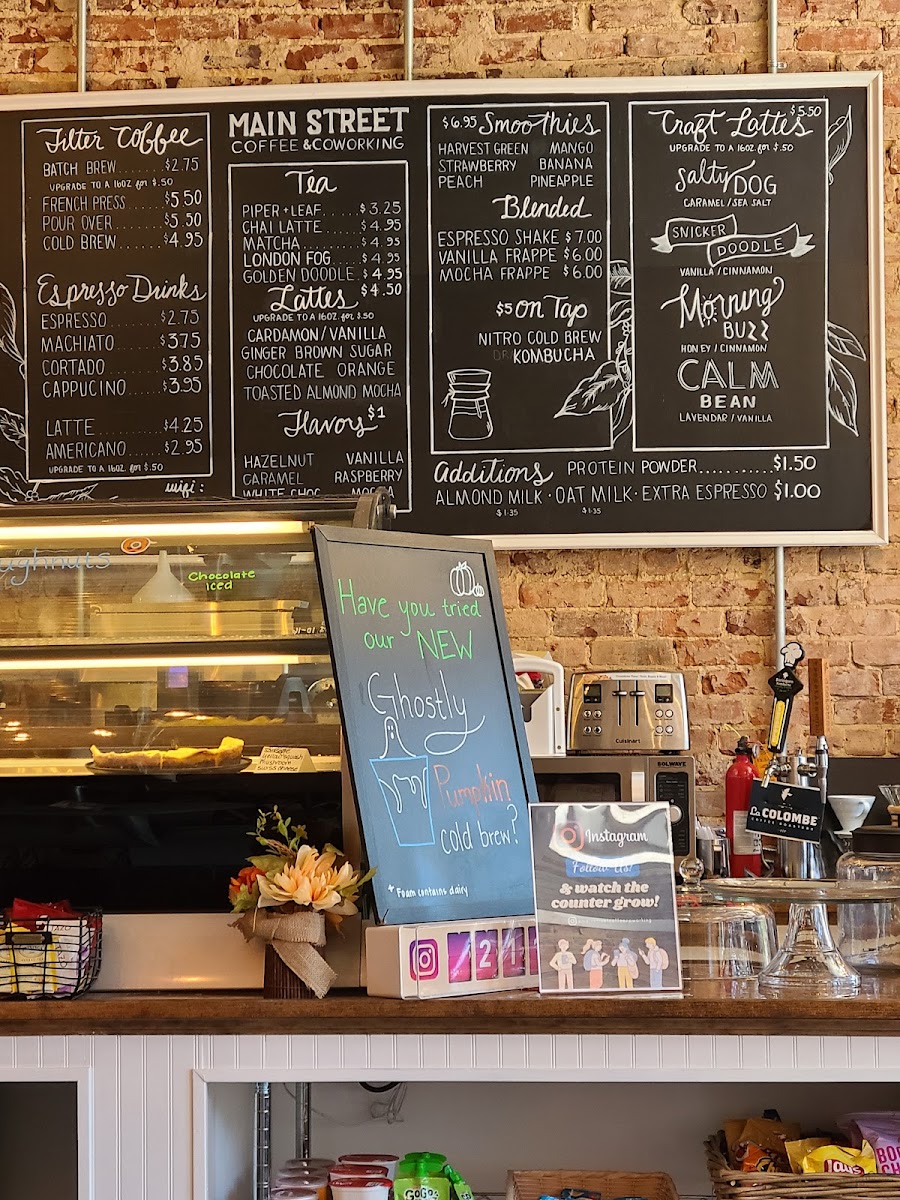 Filter Coffee
BATCH BREW.......$2.75
UPGRADE TO A 16OZ for $.50
FRENCH PRESS.....$5.50
POUR OVER........$5.50
COLD BREW.......$4.95
Espresso Drinks
ESPRESSO........$2.75
MACHIATO.......$3.75
CORTADO........$3.85
CAPPUCINO......$3.95
LATTE..........$4.25
AMERICANO......$2.95
UPGRADE TO A 16OZ for $.50
wifi:
MAIN STREET
COFFEE & COWORKING
Tea
PIPER + LEAF.....$3.25
CHAI LATTE.......$4.95
MATCHA..........$4.95
LONDON FOG.....$4.95
GOLDEN DOODLE..$4.95
Lattes $4.50
UPGRADE TO A 16OZ for $.50
CARDAMON/VANILLA
GINGER BROWN SUGAR
CHOCOLATE ORANGE
TOASTED ALMOND MOCHA
Flavors $1
HAZELNUT VANILLA
CARAMEL RASPBERRY
WHITE CHOC
$6.95 Smoothies
HARVEST GREEN MANGO
STRAWBERRY BANANA
PEACH PINEAPPLE
Blended
ESPRESSO SHAKE $7.00
VANILLA FRAPPE $6.00
MOCHA FRAPPE $6.00
$5 on Tap
NITRO COLD BREW
KOMBUCHA
Craft Lattes $5.50
UPGRADE TO A 16OZ for $.50
Salty DOG
CARAMEL/SEA SALT
SNICKER
DOODLE
VANILLA/CINNAMON
Morning
BUZZ
HONEY/CINNAMON
CALM
BEAN
LAVENDAR/VANILLA
Additions PROTEIN POWDER..........$1.50
ALMOND MILK · OAT MILK · EXTRA ESPRESSO $1.00
$1.35 $1.35
ughnuts
Chocolate
iced
Have you tried
our NEW
Ghostly
Pumpkin
cold brew?
* Foam contains dairy
Mushroom
Cuisinart
BOLWAVE
La COLOMBE
COFFEE ROASTERS
Instagram
Follow Us!
& watch the
counter grow!
121
GoGo
Lay's